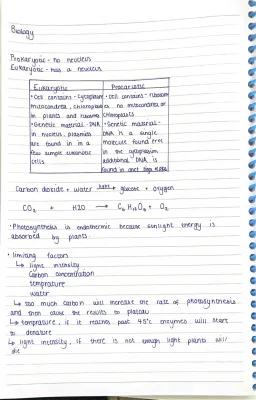 Biology
Prokaryotic - no nucleus
Eukaryotic - has a nucleus
Eukaryotic
• Cell contains - cytoplasm
mitocondria, chloroplast
in plants and ribosome
• Genetic material - DNA
in nucleus, plasmids
are found in in a
few simple eukaryotic
cells
Procariotic
• Cell contains - ribosom
no mitocondria or
chloroplasts
• Genetic material -
DNA is a single
molecule found free
in the cytoplasm
additional DNA is
found in
Carbon dioxide + water light→ glucose + oxygen
CO2 + H2O → C6H12O6 + O2
• Photosynthesis is endothermic because sunlight energy is
absorbed by plants
• limiting factors
↳ light intensity
Carbon concentration
temprature
water
↳ too much carbon will increase the rate of photosynthesis
and then cause the results to plateau
↳ temprature, if it reaches past 45°c enzymes will start
to denature
↳ light intensity, if there is not enough light plants will
die